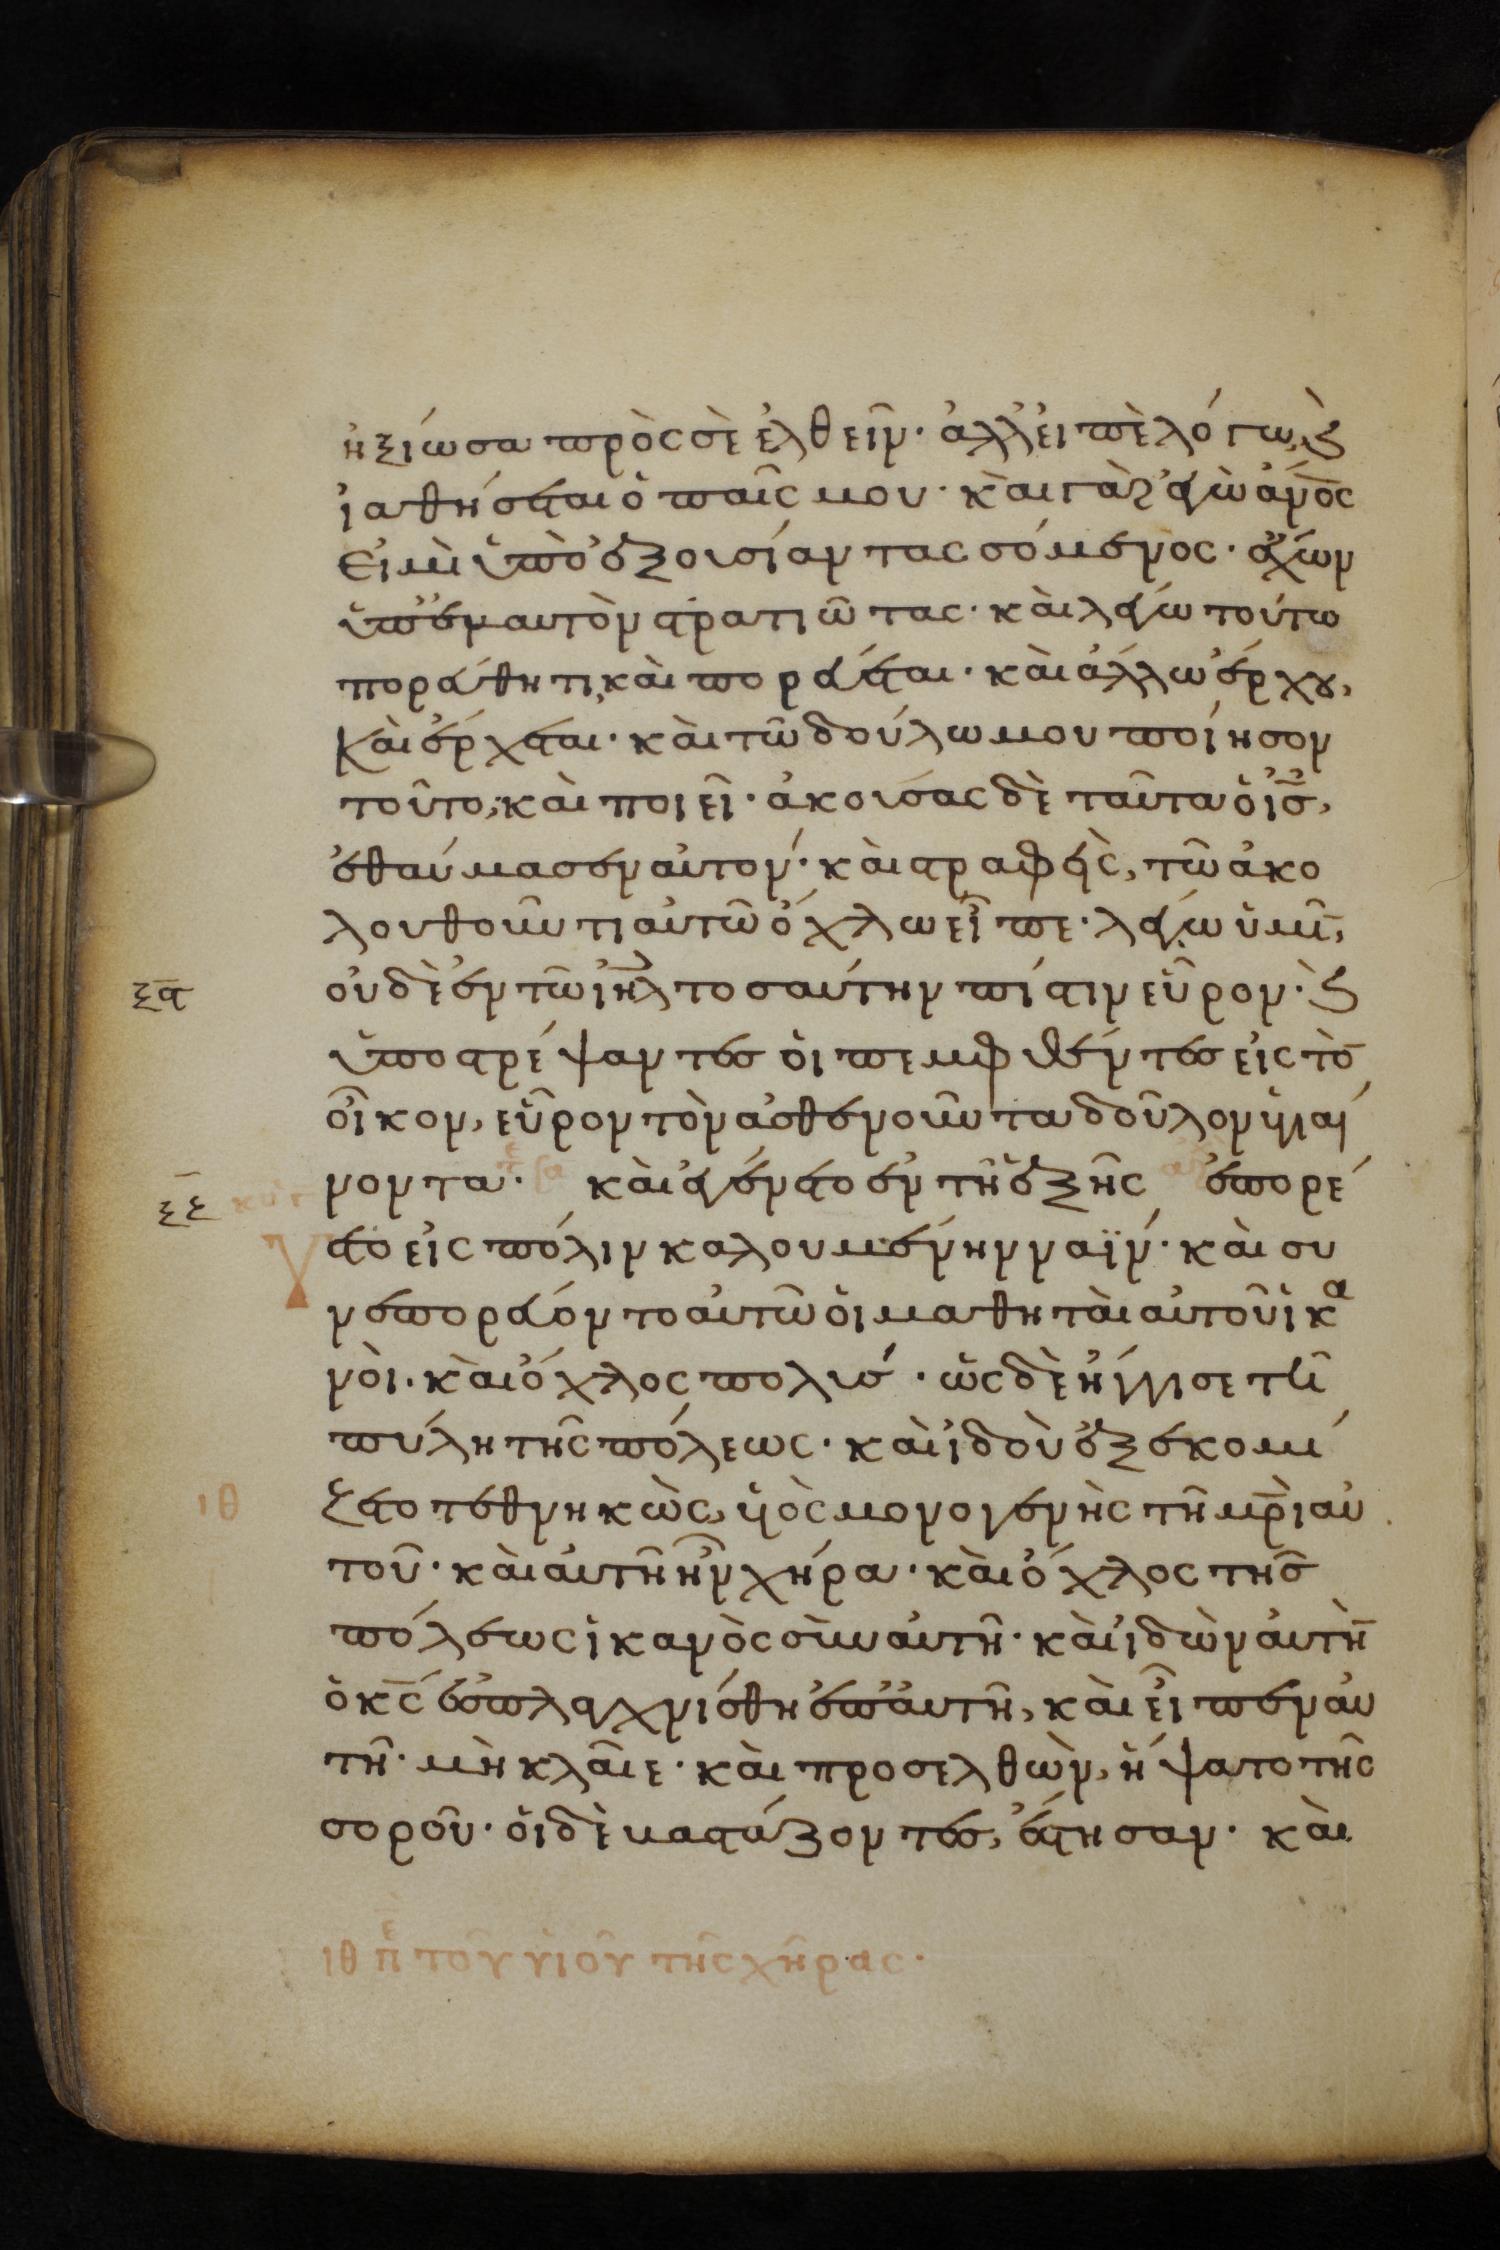 ἠξίωσα πρὸς σὲ ἐλθεῖν· ἀλλ' εἰπὲ λόγω, ϗ
ἰαθήσεται ὁ παῖς μου· καὶ γὰρ ἐγὼ ἄνο̅ς
εἰμὶ ὑπὸ ἐξουσίαν τασσόμενος· ἔχων
ὑπ' ἐμαυτὸν στρατιώτας· καὶ λέγω τούτω
πορεύθητι, καὶ πορεύεται· καὶ ἄλλω ἔρχου,
καὶ ἔρχεται· καὶ τῶ δούλω μου ποίησον
τοῦτο, καὶ ποιεῖ· ἀκούσας δὲ ταῦτα ὁ ἰς̅,
ἐθαύμασεν αὐτόν· καὶ στραφεὶς, τῶ ἀκο
λουθοῦντι αὐτῶ ὄχλω εἶπε· λέγω ὑμῖ̅,
ξα οὐδὲ ἐν τῶ ιη̅λ τοσαύτην πίστιν εὗρον· ϗ
ὑποστρέψαντες οἱ πεμφθέντες εἰς τὸ̅
οἶκον, εὗρον τὸν ἀσθενοῦντα δοῦλον ὑγιαί
ξε νοντα· καὶ ἐγένετο ἐν τῆ ἑξῆς ἐπορεύ
ετο εἰς πόλιν καλουμένην ναΐν· καὶ συ
νεπορεύοντο αὐτῶ οἱ μαθηταὶ αὐτοῦ ἱκα
νοὶ· καὶ ὄχλος πολύς· ὡς δὲ ἤγγισε τῆ
πύλη τῆς πόλεως· καὶ ἰδοὺ ἐξεκομί
ιθ ζετο τεθνηκὼς, υἱὸς μονογενὴς τῆ μρ̅ι αὐ
τοῦ· καὶ αὐτὴ ἦν χήρα· καὶ ὄχλος τῆς
πόλεως ἱκανὸς σὺν αὐτῆ· καὶ ἰδὼν αὐτὴ̅
ὁ κς̅ ἐσπλαγχνίσθη ἐπ' αὐτῆ, καὶ εἶπεν αὐ
τῆ· μὴ κλαῖε· καὶ προσελθὼν, ἥψατο τῆς
σοροῦ· οἱ δὲ βαστάζοντες, ἔστησαν· καὶ
ιθ πε τοῦ υἱοῦ τῆς χῆρας·